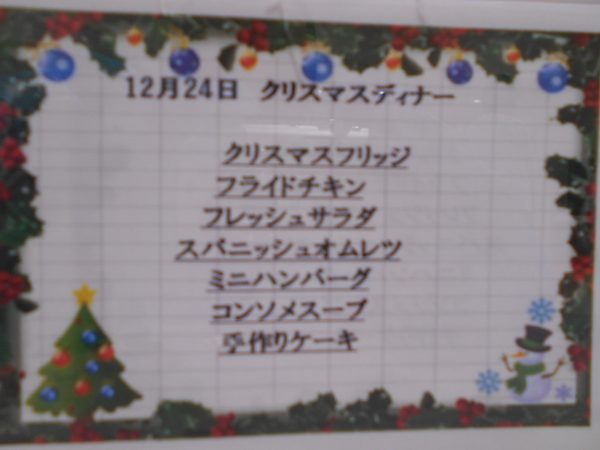 12月24日 クリスマスディナー
クリスマスフリッジ
フライドチキン
フレッシュサラダ
スパニッシュオムレツ
ミニハンバーグ
コンソメスープ
手作りケーキ